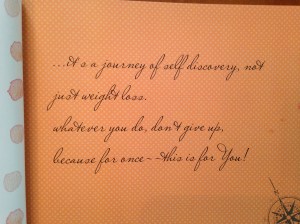 ...it's a journey of self discovery, not
just weight loss.
whatever you do, don't give up,
because for once--this is for You!